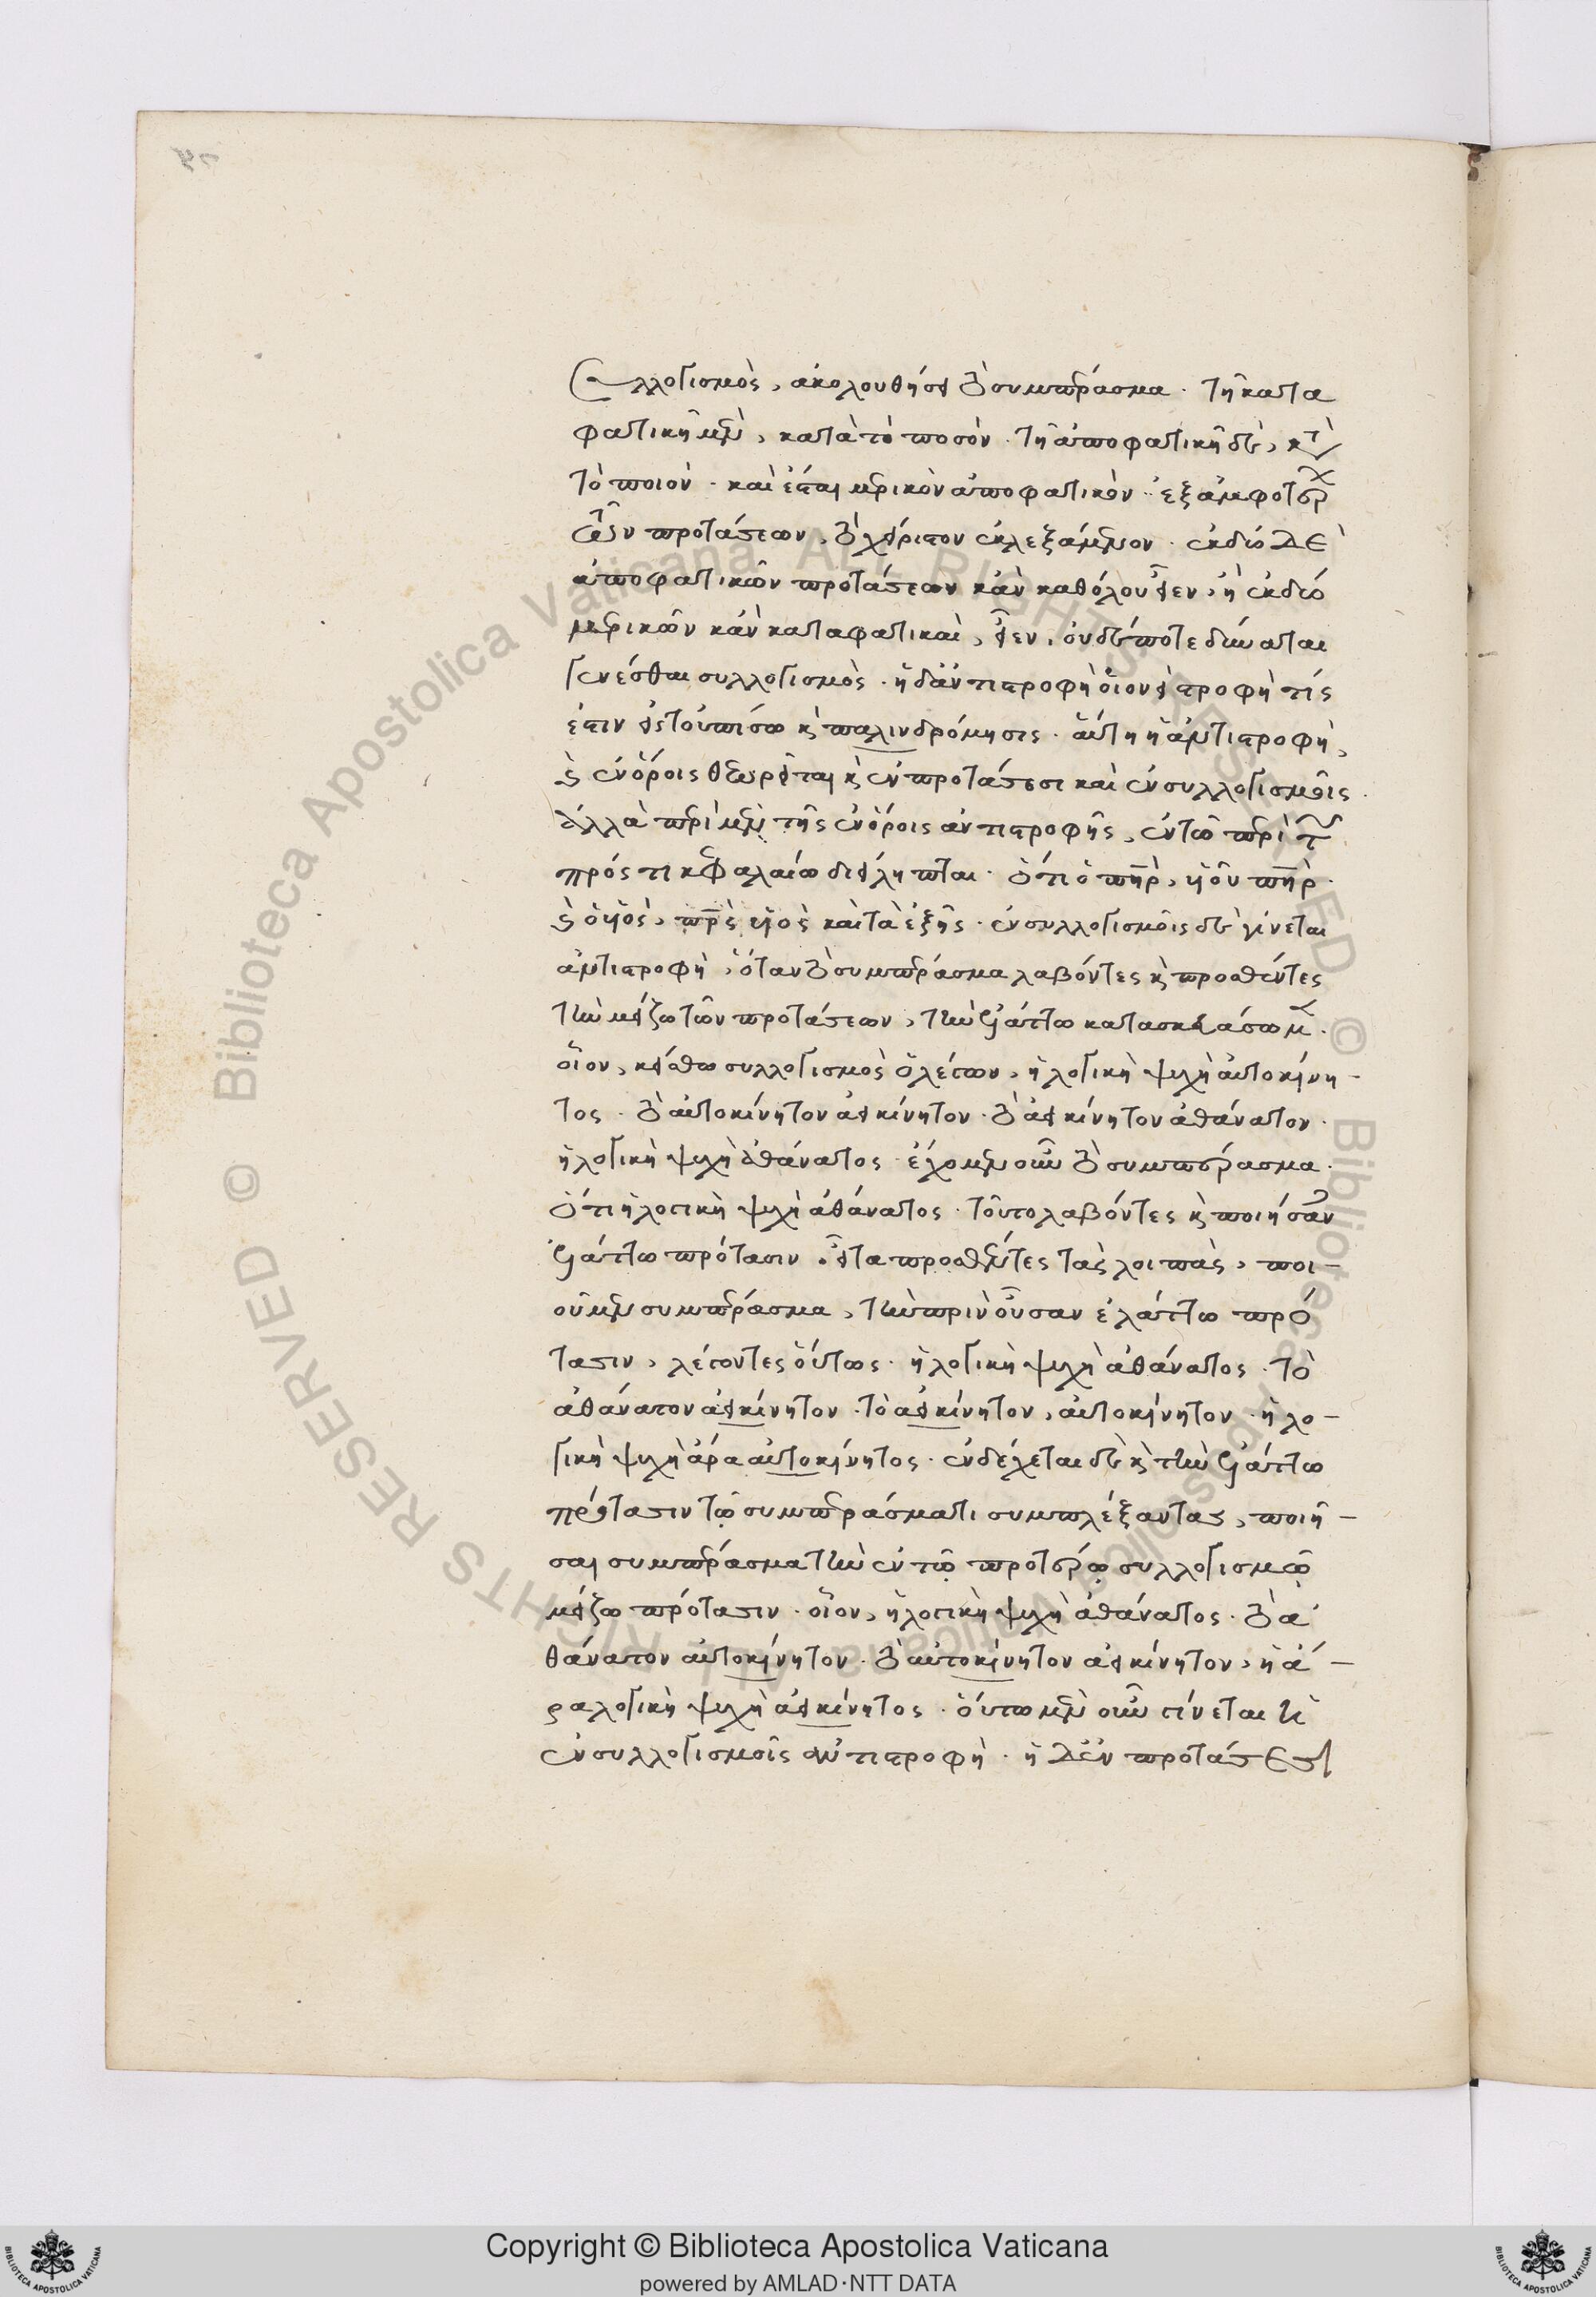 συλλογισμὸς, ἀκολουθήσει τὸ συμπέρασμα · τῆ κατα
φατικῆ μὲν, κατὰ τὸ ποσόν · τῆ ἀποφατικῆ δὲ, κατὰ
τὸ ποιόν · καὶ ἔσται μερικὸν ἀποφατικόν · ἐξ ἀμφοτέρων
τῶν προτάσεων, τὸ χεῖριστον ἐκλεξάμενον · ἐκ δύο δὲ
ἀποφατικῶν προτάσεων κἂν καθόλου εἶεν, ἢ ἐκ δύο
μερικῶν κἂν καταφατικαὶ, εἶεν, οὐδέποτε δύναται
γενέσθαι συλλογισμὸς · ἡ δ' ἀντιστροφὴ οἱονεὶ στροφὴ τίς
ἐστιν εἰς τοὐπίσω κὶ παλινδρόμησις · αὕτη ἡ ἀντιστροφὴ,
κὶ ἐν ὅροις θεωρεῖται κὶ ἐν προτάσεσι καὶ ἐν συλλογισμοῖς ·
ἀλλὰ περὶ μὲν τῆς ἐν ὅροις ἀντιστροφῆς, ἐν τῶ περὶ τῶν
πρός τι κεφαλαίω διείληπται · ὅτι ὁ πὴρ, υἱοῦ πὴρ ·
κὶ ὁ υἱὸς, πρς υἱὸς καὶ τὰ ἑξῆς · ἐν συλλογισμοῖς δὲ γίνεται
ἀντιστροφὴ, ὅταν τὸ συμπέρασμα λαβόντες κὶ προσθέντες
τὴν μείζω τῶν προτάσεων, τὴν ἐλάττω κατασκευάσωμεν ·
οἷον, κείσθω συλλογισμὸς ὁ λέγων, ἡ λογικὴ ψυχὴ αὐτοκίνη-
τος · τὸ αὐτοκίνητον ἀεικίνητον · τὸ ἀεικίνητον ἀθάνατον ·
ἡ λογικὴ ψυχὴ ἀθάνατος · ἔχομεν οὖν τὸ συμπέρασμα ·
ὅτι ἡ λογικὴ ψυχὴ ἀθάνατος · τοῦτο λαβόντες κὶ ποιήσαν
ἐλάττω πρότασιν · εἶτα προσθέντες τὰς λοιπὰς, ποι-
οῦμεν συμπέρασμα, τὴν πρὶν οὖσαν ἐλάττω πρό
τασιν, λέγοντες οὕτως · ἡ λογικὴ ψυχὴ ἀθάνατος · τὸ
ἀθάνατον ἀεικίνητον · τὸ ἀεικίνητον, αὐτοκίνητον · ἡ λο-
γικὴ ψυχὴ ἄρα αὐτοκίνητος · ἐνδέχεται δὲ κὶ τὴν ἐλάττω
πρότασιν τῷ συμπεράσματι συμπλέξαντας, ποιῆ-
σαι συμπέρασμα τὴν ἐν τῷ προτέρῳ συλλογισμῷ
μείζω πρότασιν · οἷον, ἡ λογικὴ ψυχὴ ἀθάνατος · τὸ ἀ
θάνατον αὐτοκίνητον · τὸ αὐτοκίνητον ἀεικίνητον, ἡ ἄ-
ρα λογικὴ ψυχὴ ἀεικίνητος · οὕτω μὲν οὖν γίνεται ἡ
ἐν συλλογισμοῖς ἀντιστροφὴ · ἡ δ' ἐν προτάσεσι